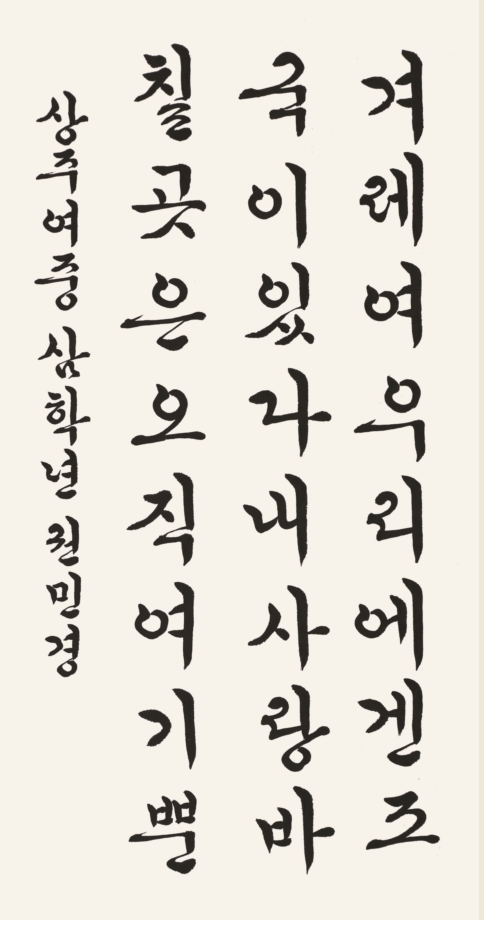 겨레여우리에겐조
국이있다내사랑바
칠곳은오직여기뿐
상주여중 삼학년 권민경